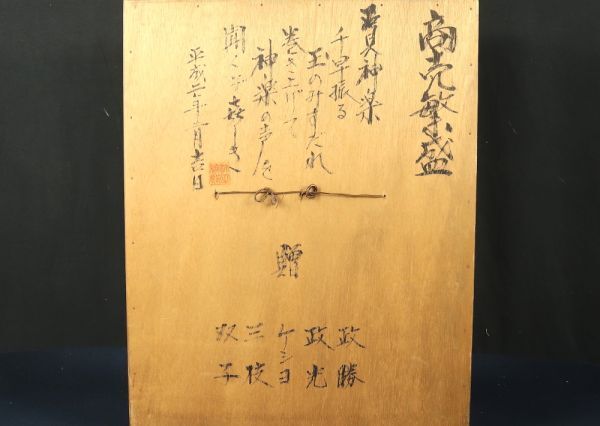 商売繁盛
神楽
千早振る
玉のみすだれ
巻き上げて
神楽の声を
聞くぞ喜しき
平成六年 月吉日
贈
政勝
政光
ケシヨ
三枝
双子